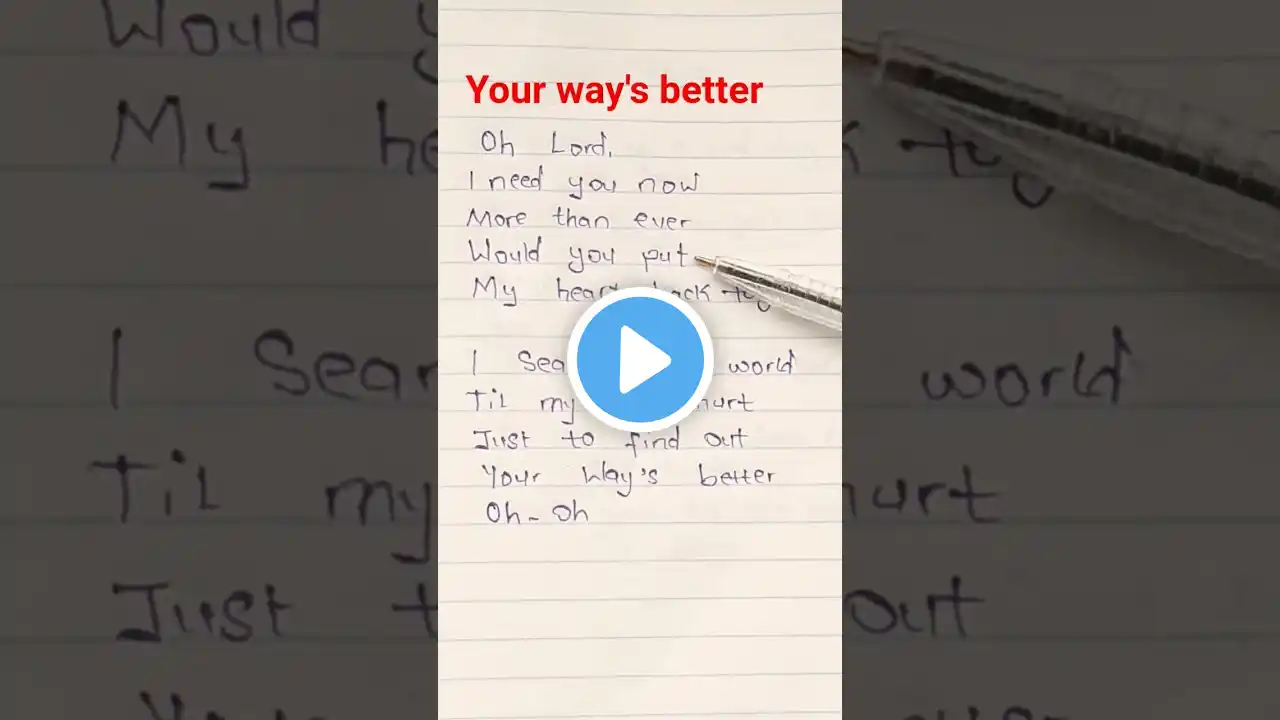 Your way's better
Oh Lord,
I need you now
More than ever
Would you put
My heart back tog
I world
Til my hurt
Just to find out
Your Way's better
Oh - Oh